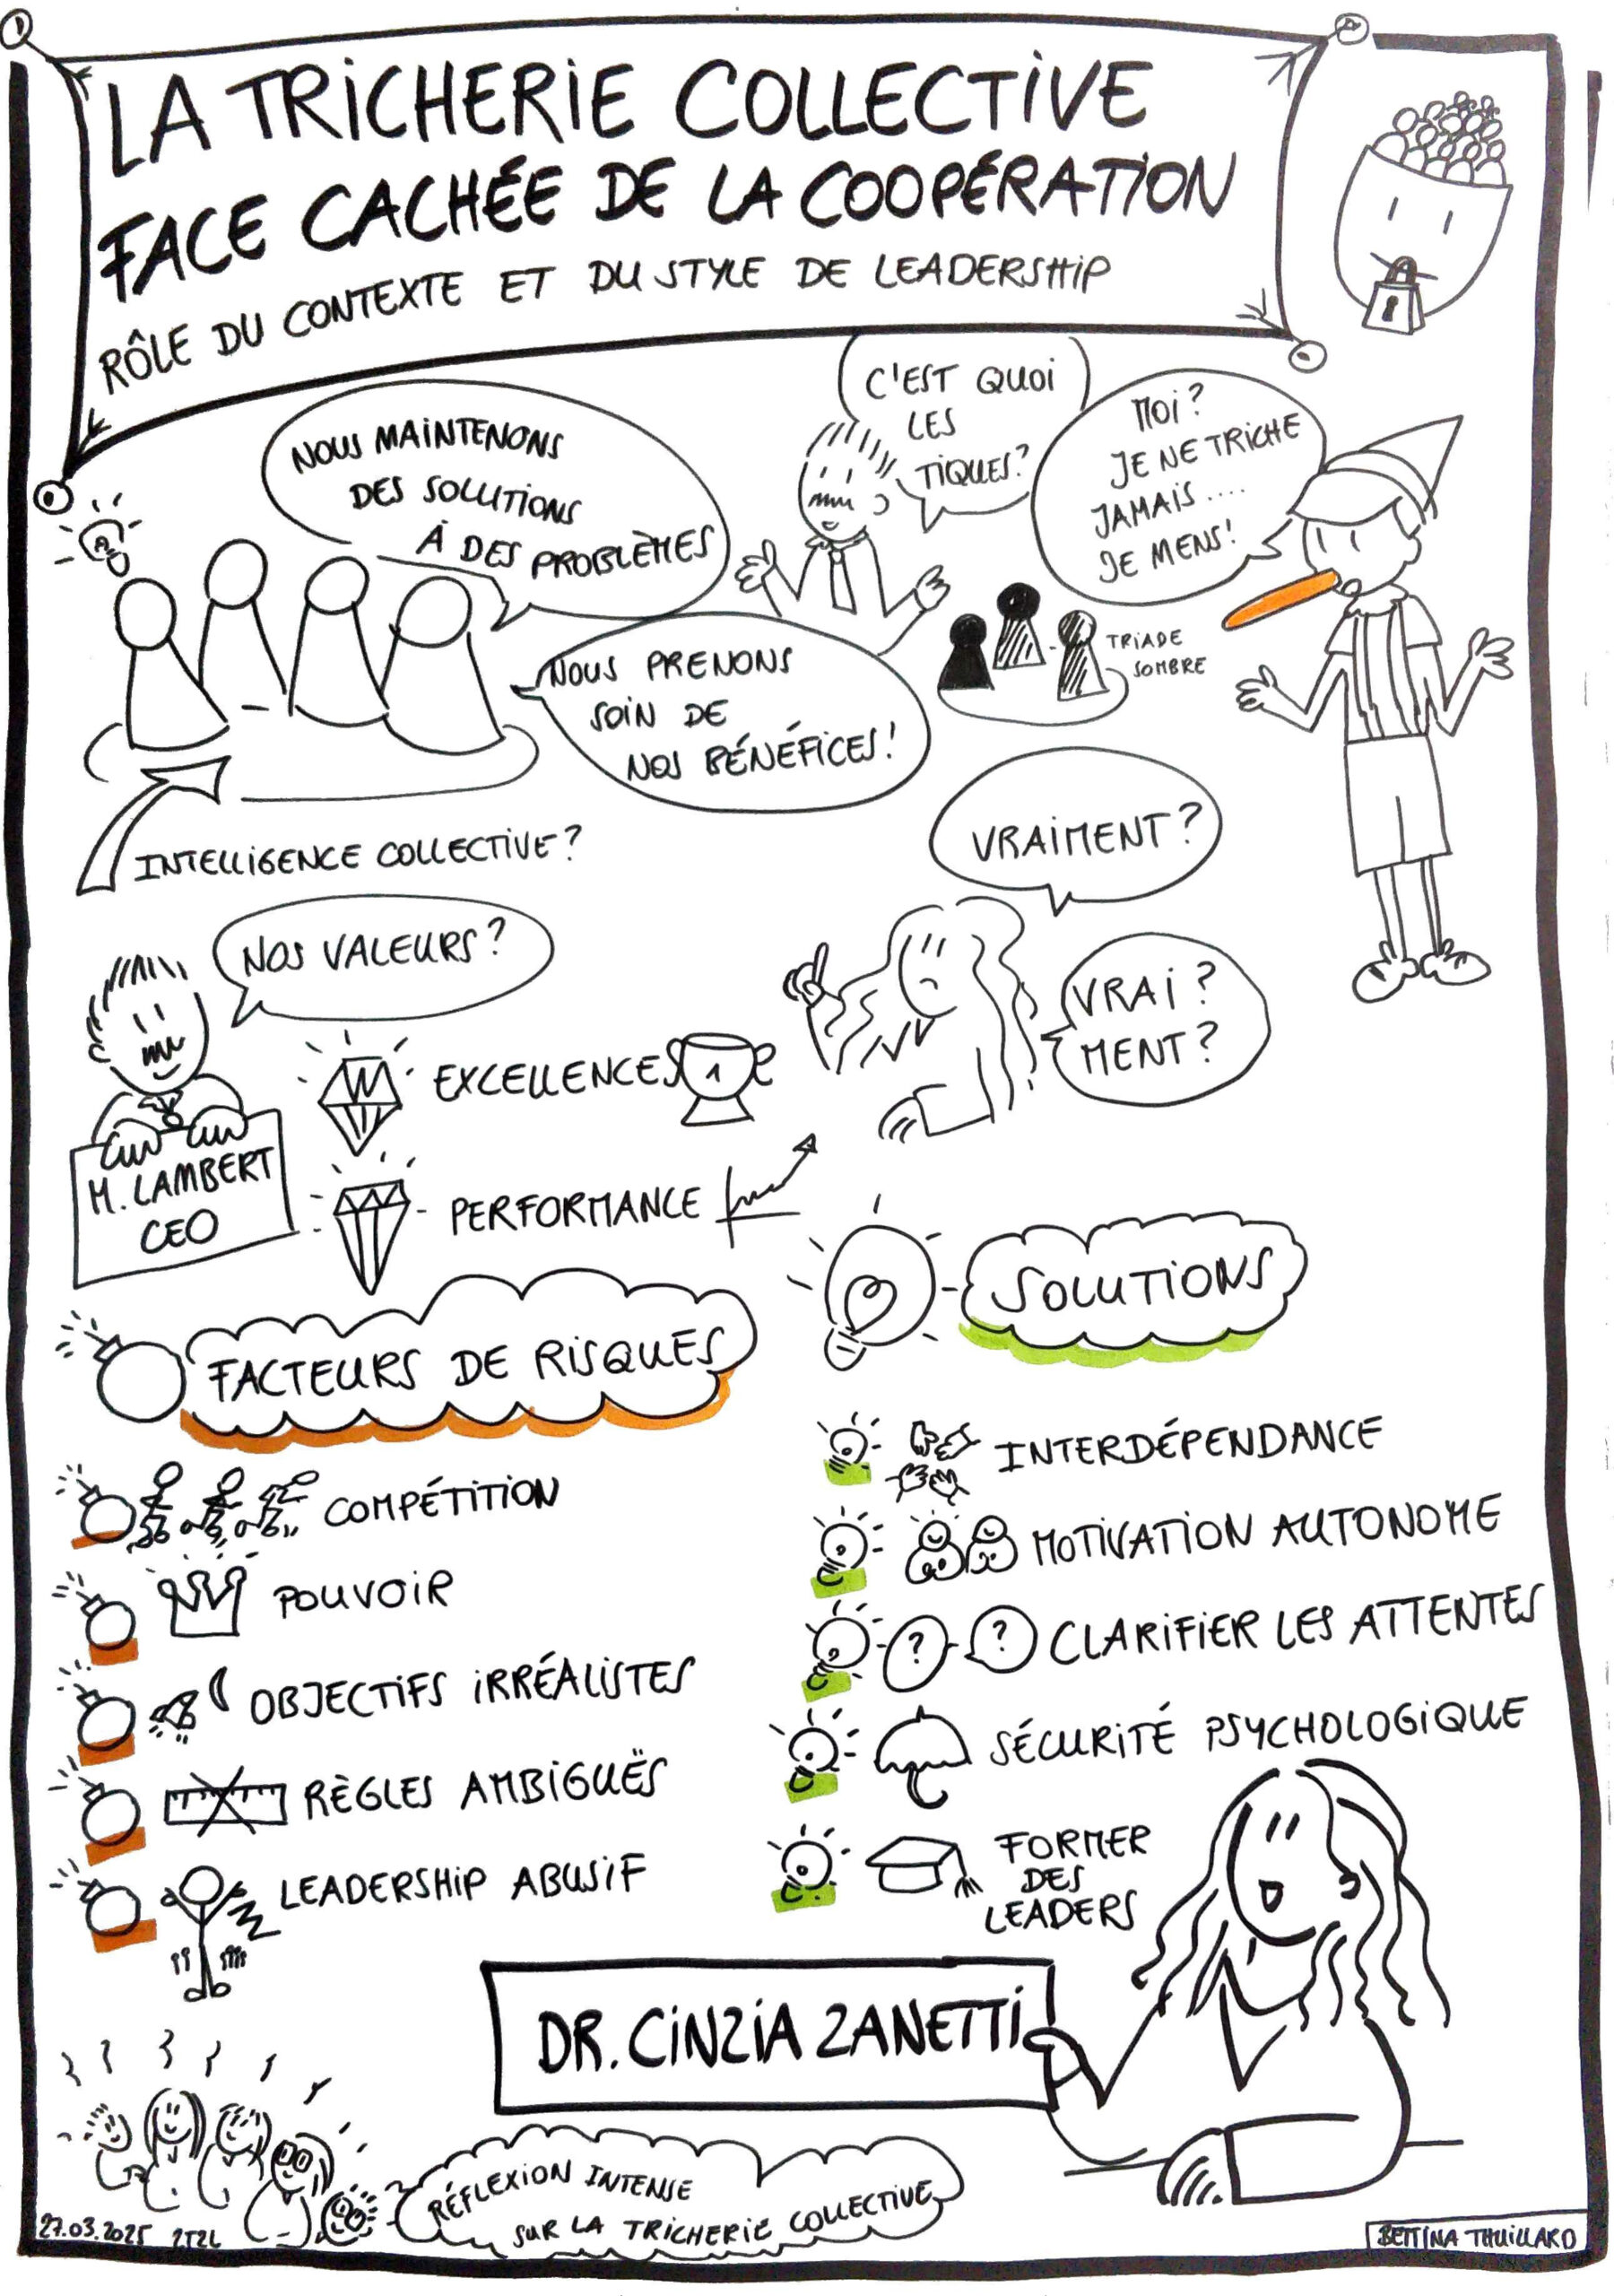 LA TRICHERIE COLLECTIVE
FACE CACHÉE DE LA COOPÉRATION
RÔLE DU CONTEXTE ET DU STYLE DE LEADERSHIP
NOUS MAINTENONS
DES SOLUTIONS
À DES PROBLÈMES
C'EST QUOI
LES
TIQUES?
MOI?
JE NE TRICHE
JAMAIS....
JE MENS!
NOUS PRENONS
SOIN DE
NOS BÉNÉFICES!
TRIADE
SOMBRE
INTELLIGENCE COLLECTIVE?
VRAIMENT?
NOS VALEURS?
VRAI?
MENT?
EXCELLENCE
1
M. LAMBERT
CEO
PERFORMANCE
SOLUTIONS
FACTEURS DE RISQUES
COMPÉTITION
POUVOIR
OBJECTIFS IRRÉALISTES
RÈGLES AMBIGUËS
LEADERSHIP ABUSIF
INTERDÉPENDANCE
MOTIVATION AUTONOME
? ? CLARIFIER LES ATTENTES
SÉCURITÉ PSYCHOLOGIQUE
FORMER
DES
LEADERS
DR. CINZIA ZANETTI
RÉFLEXION INTENSE
SUR LA TRICHERIE COLLECTIVE
27.03.2025
BETTINA THUILLARD